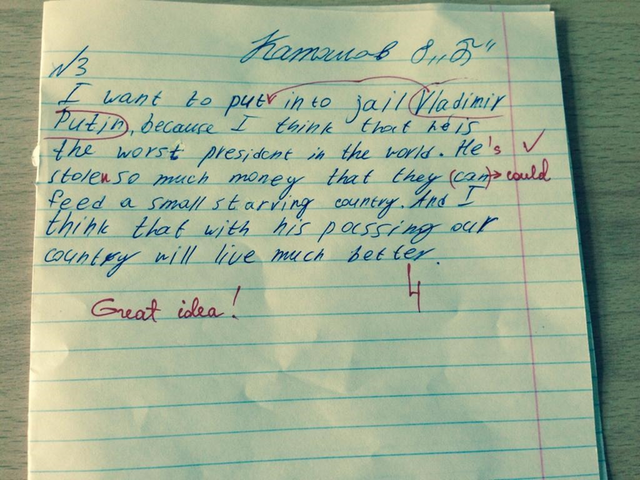 Катамов 8 „Б"
№3
I want to put into jail Vladimir
Putin, because I think that he is
the worst president in the world. He's ✓
stolen so much money that they (can) → could
feed a small starving country. And I
think that with his passing our
country will live much better.
Great idea! 4